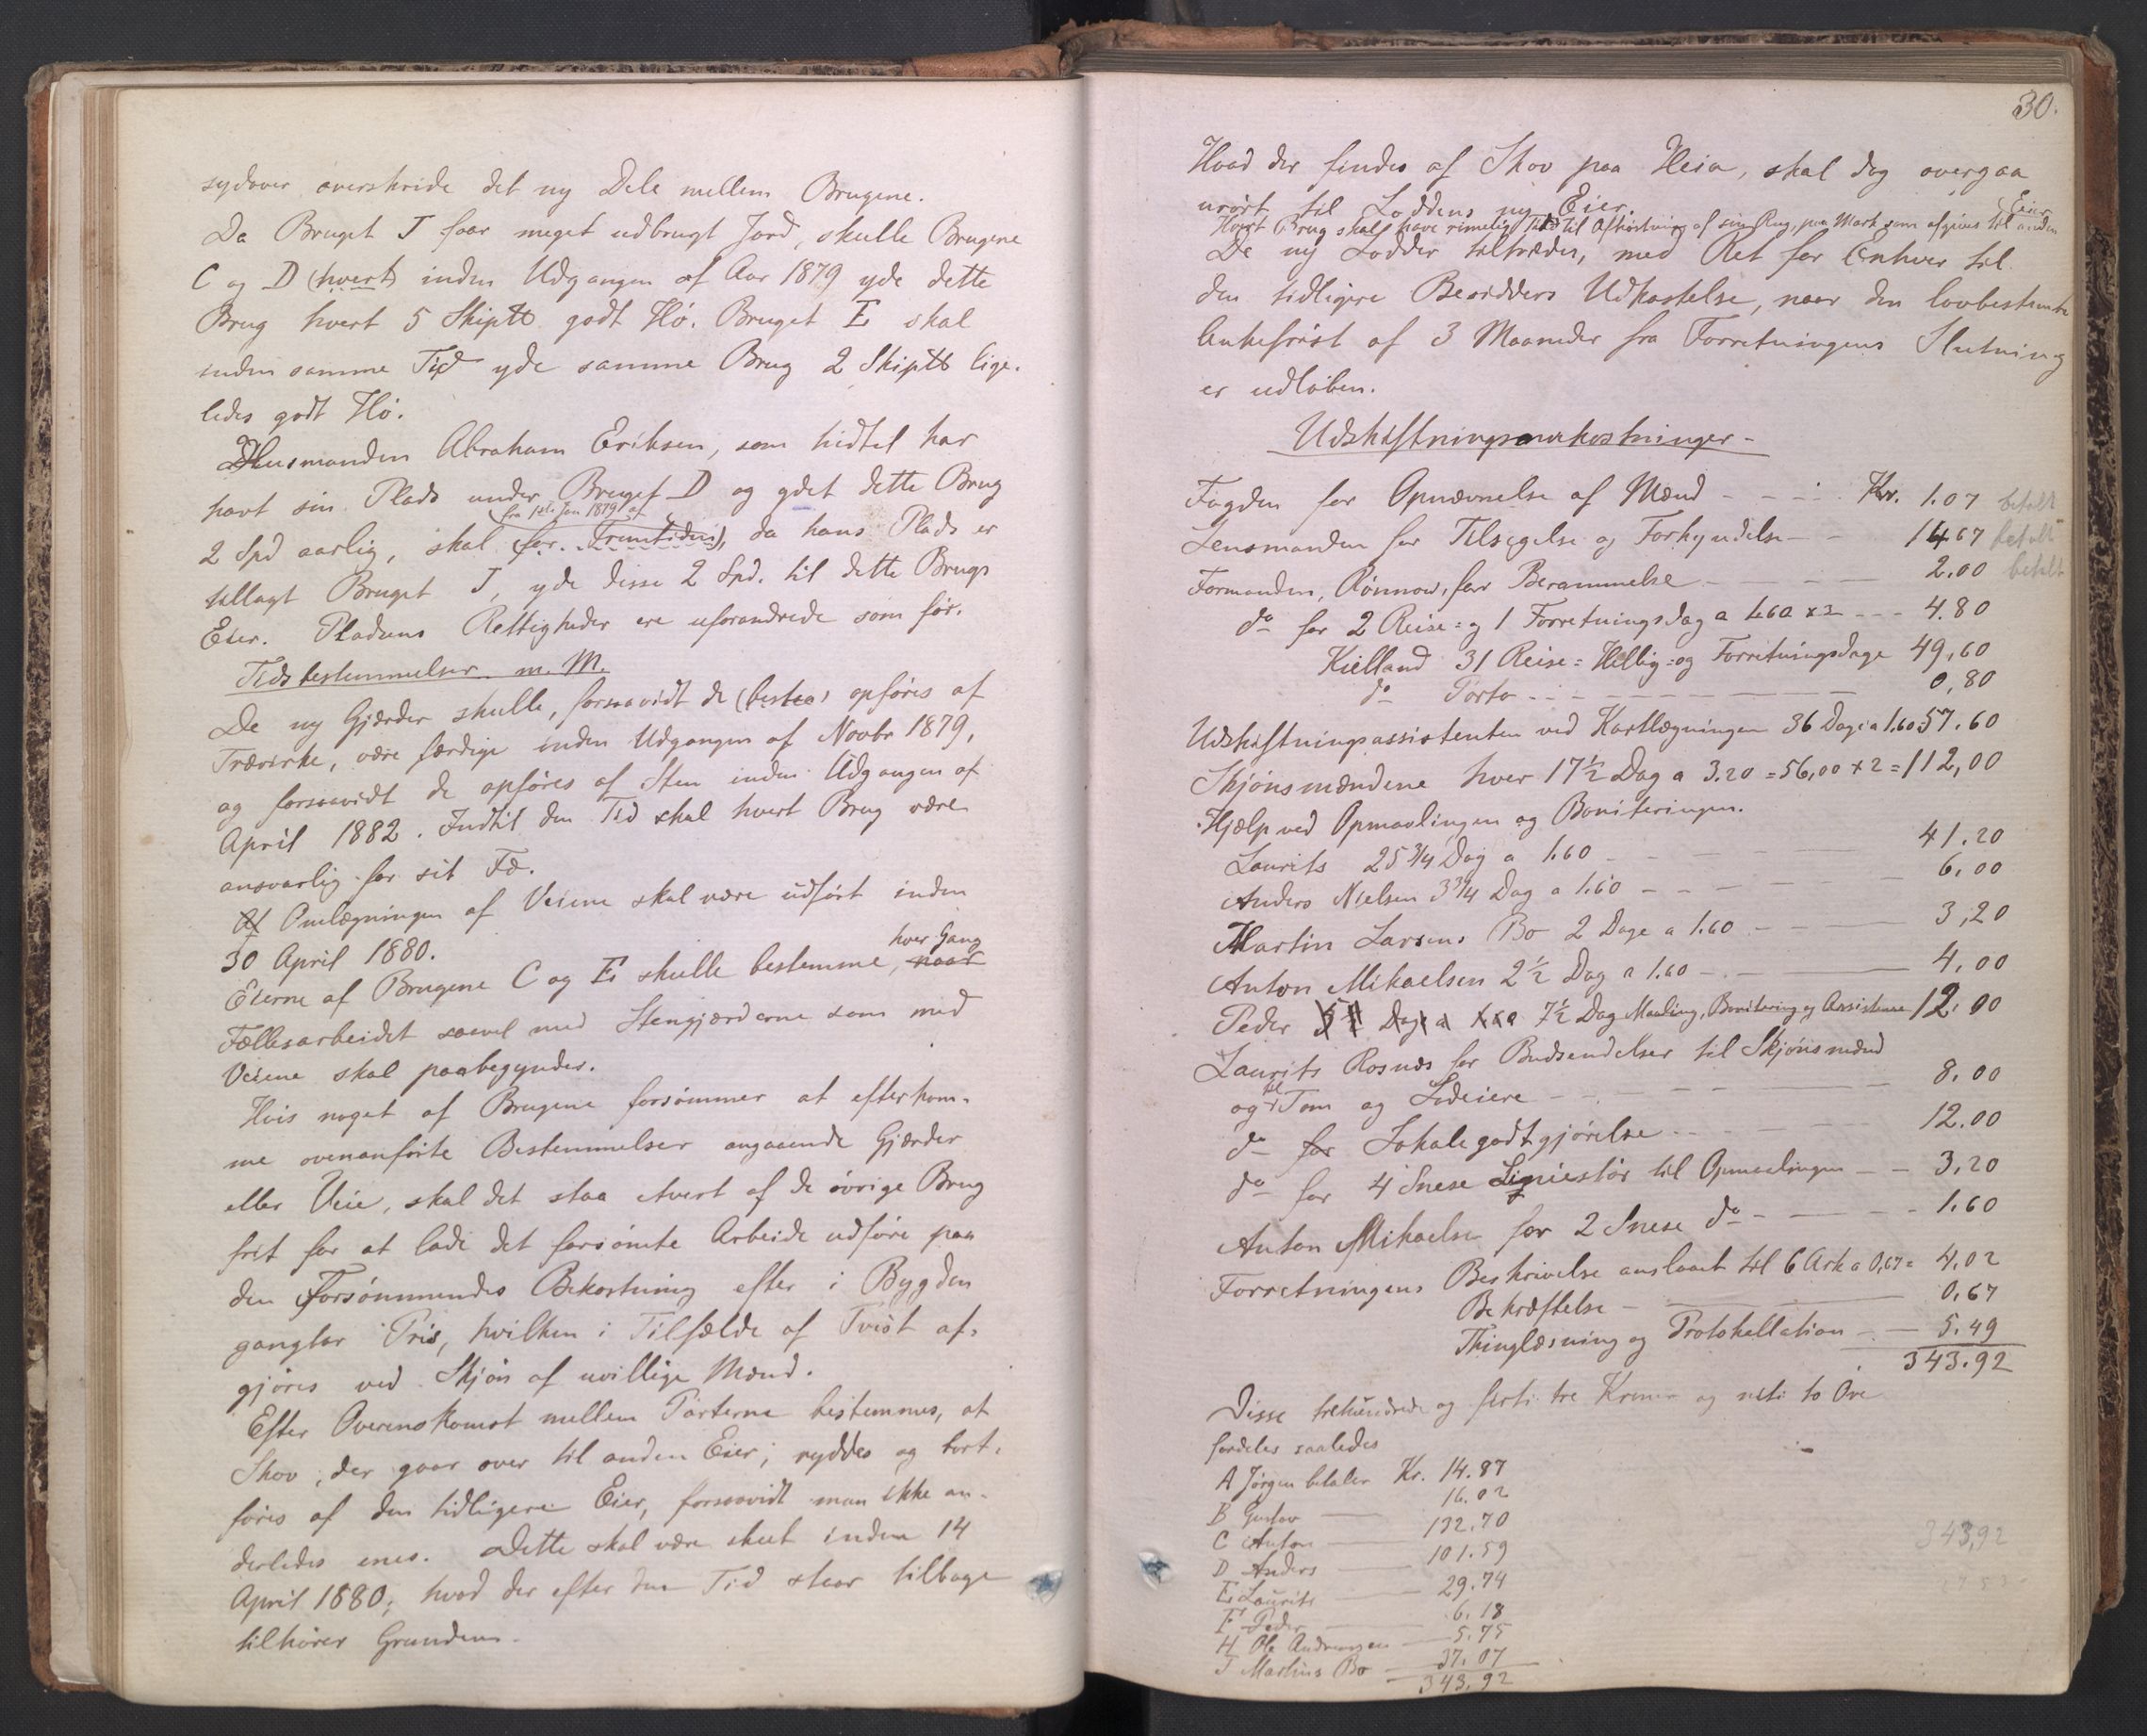 sydover overskride det ny Dele mellem Brugene.
Da Bruget I faar meget udbrugt Jord, skulle Brugene
C og D (hvert) inden Udgangen af Aar 1879 yde dette
Brug hvert 5 Skiptt godt Hö. Bruget E skal
inden samme Tid yde samme Brug 2 Skiptt lige-
ledes godt Hö.
Husmanden Abraham Eriksen, som hidtil har
havt sin Plads under Bruget D og ydet dette Brug
fra 1ste Jan 1879 af
2 Spd aarlig, skal (for Fremtiden), da hans Plads er
tillagt Bruget I, yde disse 2 Spd. til dette Brugs
Eier. Pladsens Rettigheder ere uforandrede som för.
Tidsbestemmelser m. M.
De ny Gjærder skulle, forsaavidt de (bestaa) opföres af
Trævirke, være færdige inden Udgangen af Novbr 1879,
og forsaavidt de opföres af Sten inden Udgangen af
April 1882. Indtil den Tid skal hvert Brug være
ansvarlig for sit Fæ.
Omlægningen af Veiene skal være udfört inden
30 April 1880.
hver Gang
Eierne af Brugene C og E skulle bestemme, naar
Fællesarbeidet saavel med Stengjærderne som med
Veiene skal paabegyndes.
Hvis noget af Brugene forsömmer at efterkom-
me ovenanförte Bestemmelser angaaende Gjærder
eller Veie, skal det staa hvert af de övrige Brug
frit for at lade det forsömte Arbeide udföre paa
den Forsömmendes Bekostning efter i Bygden
gangbar Pris, hvilken i Tilfælde af Tvist af-
gjöres ved Skjön af uvillige Mænd.
Efter Overenskomst mellem Parterne bestemmes, at
Skov, der gaar over til anden Eier, ryddes og bort-
föres af den tidligere Eier, forsaavidt man ikke an-
derledes enes. Dette skal være skeet inden 14
April 1880; hvad der efter den Tid staar tilbage
tilhörer Grunden.
30.
Hvad der findes af Skov paa Heia, skal dog overgaa
urört til Loddens ny Eier.
Eier
Hvert Brug skal have rimelig Tid til Afhöstning af sin Rug, paa Mark som afgives til anden
De ny Lodder tiltrædes, med Ret for Enhver til
den tidligere Besidders Udkastelse, naar den lovbestemte
Ankefrist af 3 Maaneder fra Forretningens Slutning
er udlöben.
Udskiftningsomkostninger-
Fogden for Opnævnelse af Mænd - - - Kr. 1.07 betalt
Lensmanden for Tilsigelse og Forkyndelse - - 14.67 betalt
Formanden, Rönnow, for Berammelse - - - 2.00 betalt
do for 2 Reise- og 1 Forretningsdag a 1.60 x 3 - - - 4.80
Kielland 31 Reise- Hellig- og Forretningsdage 49,60
do Porto - - - 0,80
Udskiftningsassistenten ved Kartlægningen 36 Dage a 1.60 57.60
Skjönsmændene hver 17½ Dag a 3.20 = 56,00 x 2 = 112,00
Hjælp ved Opmaalingen og Boniteringen.
Laurits 25 3/4 Dag a 1.60 - - - 41.20
Anders Nielsen 3 3/4 Dag a 1.60 - - - 6.00
Martin Larsens Bo 2 Dage a 1.60 - - - 3,20
Anton Mikaelsen 2½ Dag a 1.60 - - - 4.00
Peder 7½ Dag Maaling, Bonitering og Assistence 12.00
Laurits Rosnæs for Budsendelser til Skjönsmænd
og til Tom og Lodeiere - - - 8.00
do for Lokalegodtgjörelse - - - 12.00
do for 4 Snese Liniestör til Opmaalingen - - 3,20
Anton Mikaelsn for 2 Snese do - - - 1.60
Forretningens Beskrivelse anslaaet til 6 Ark a 0,67 = 4.02
Bekræftelse - - - 0.67
Thinglæsning og Protokollation - - - 5.49
343.92
Disse trehundrede og forti tre Kroner og niti to Öre
fordeles saaledes
A Jörgen betaler Kr. 14.87
B Gustav - 16.02
C Anton - 132.70
D Anders - 101.59
E Laurits - 29.74
F Peder - 6.18
H Ole Andreassen - 5.75
I Martins Bo - 37.07
343.92
343,92